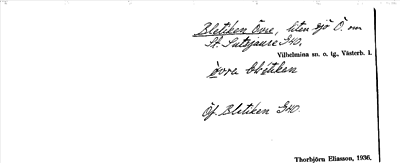 Bletiken Övre, liten sjö Ö. om
St. Satsjaure G40.
Vilhelmina sn. o. tg., Västerb. l.
övra bletiken
Öf. Bletiken G40.
Thorbjörn Eliasson, 1936.